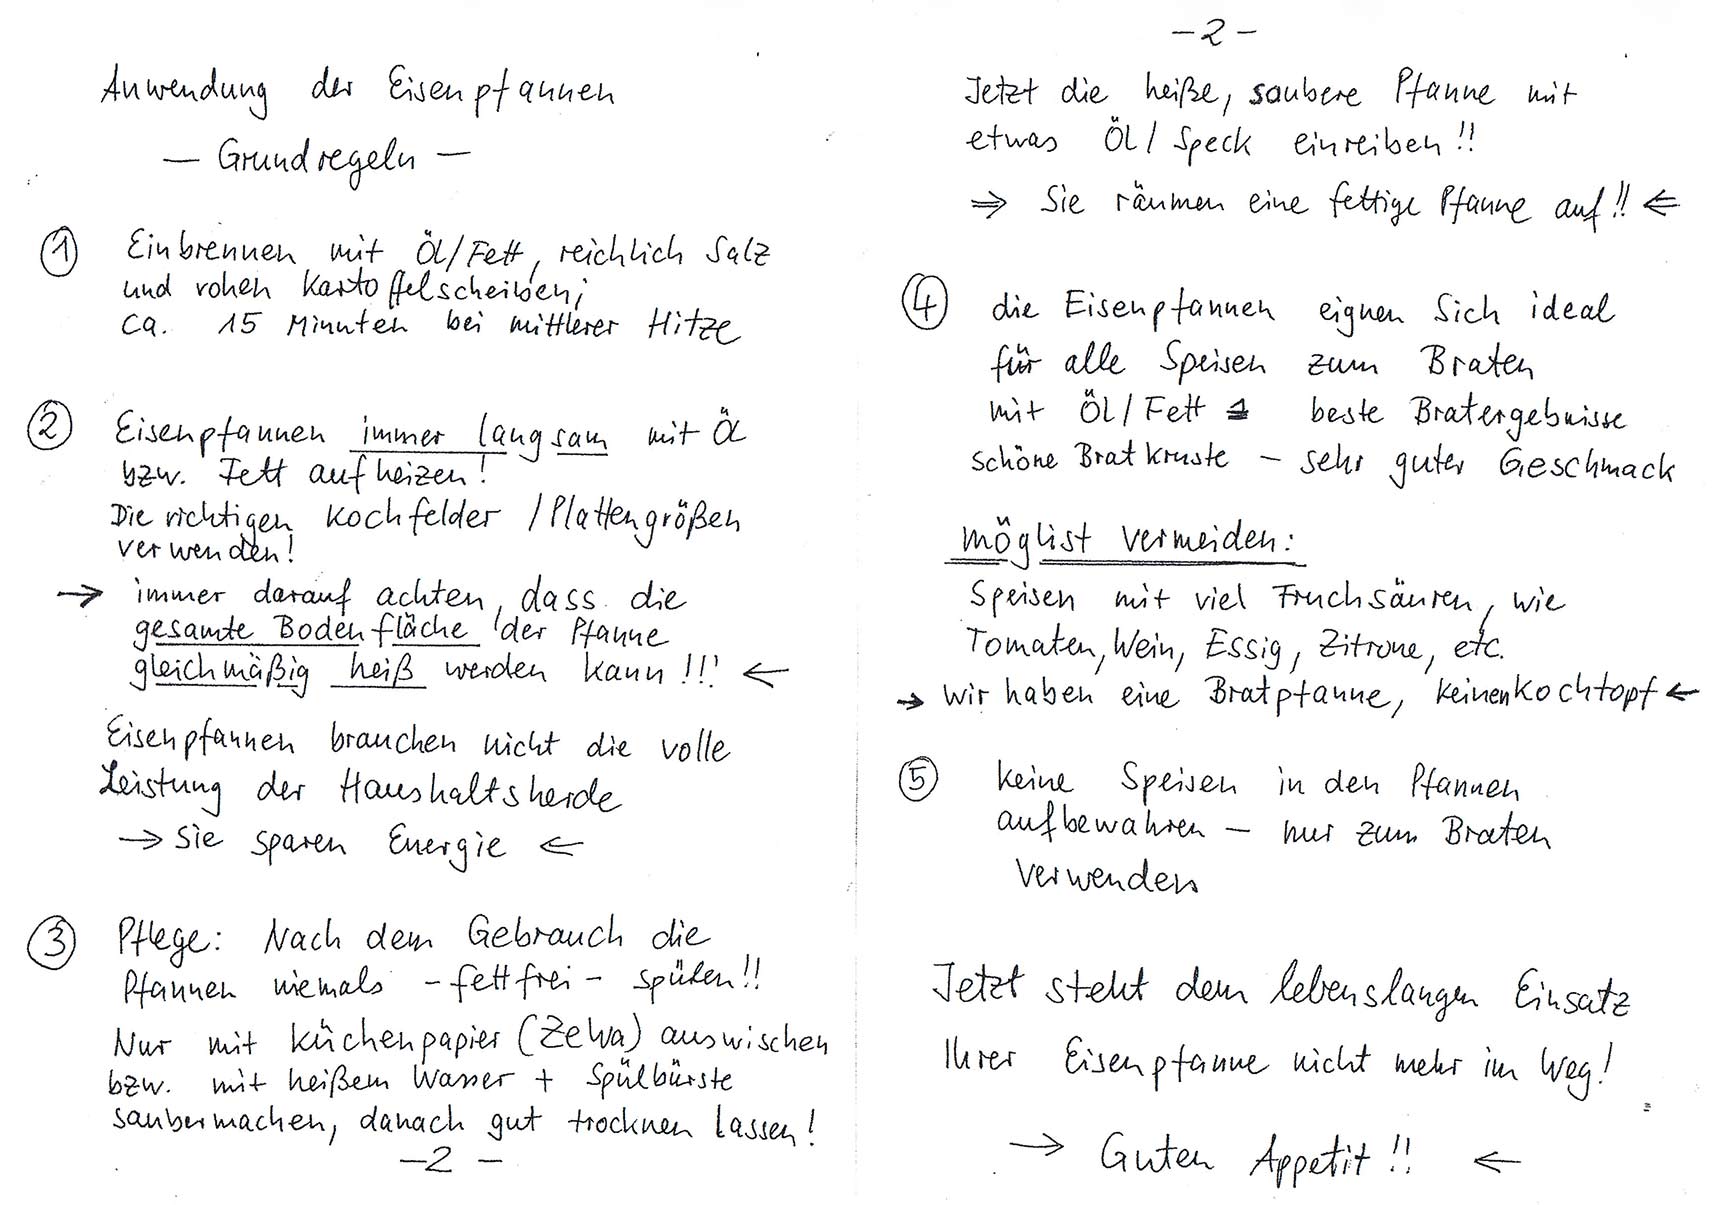 Anwendung der Eisenpfannen
— Grundregeln —
① Einbrennen mit Öl/Fett, reichlich Salz
und rohen Kartoffelscheiben;
ca. 15 Minuten bei mittlerer Hitze
② Eisenpfannen immer langsam mit Öl
bzw. Fett aufheizen!
Die richtigen Kochfelder / Plattengrößen
verwenden!
→ immer darauf achten, dass die
gesamte Bodenfläche der Pfanne
gleichmäßig heiß werden kann!!! ←
Eisenpfannen brauchen nicht die volle
Leistung der Haushaltsherde
→ Sie sparen Energie ←
③ Pflege: Nach dem Gebrauch die
Pfannen niemals – fettfrei – spülen!!
Nur mit Küchenpapier (Zewa) auswischen
bzw. mit heißem Wasser + Spülbürste
saubermachen, danach gut trocknen lassen!
– 2 –
– 2 –
Jetzt die heiße, saubere Pfanne mit
etwas Öl / Speck einreiben!!
⇒ Sie räumen eine fettige Pfanne auf!! ⇐
④ die Eisenpfannen eignen sich ideal
für alle Speisen zum Braten
mit Öl / Fett beste Bratergebnisse
schöne Bratkruste – sehr guter Geschmack
möglist vermeiden:
Speisen mit viel Fruchsäuren, wie
Tomaten, Wein, Essig, Zitrone, etc.
→ wir haben eine Bratpfanne, keinen Kochtopf ←
⑤ keine Speisen in den Pfannen
aufbewahren – nur zum Braten
verwenden
Jetzt steht dem lebenslangen Einsatz
Ihrer Eisenpfanne nicht mehr im Weg!
→ Guten Appetit!! ←